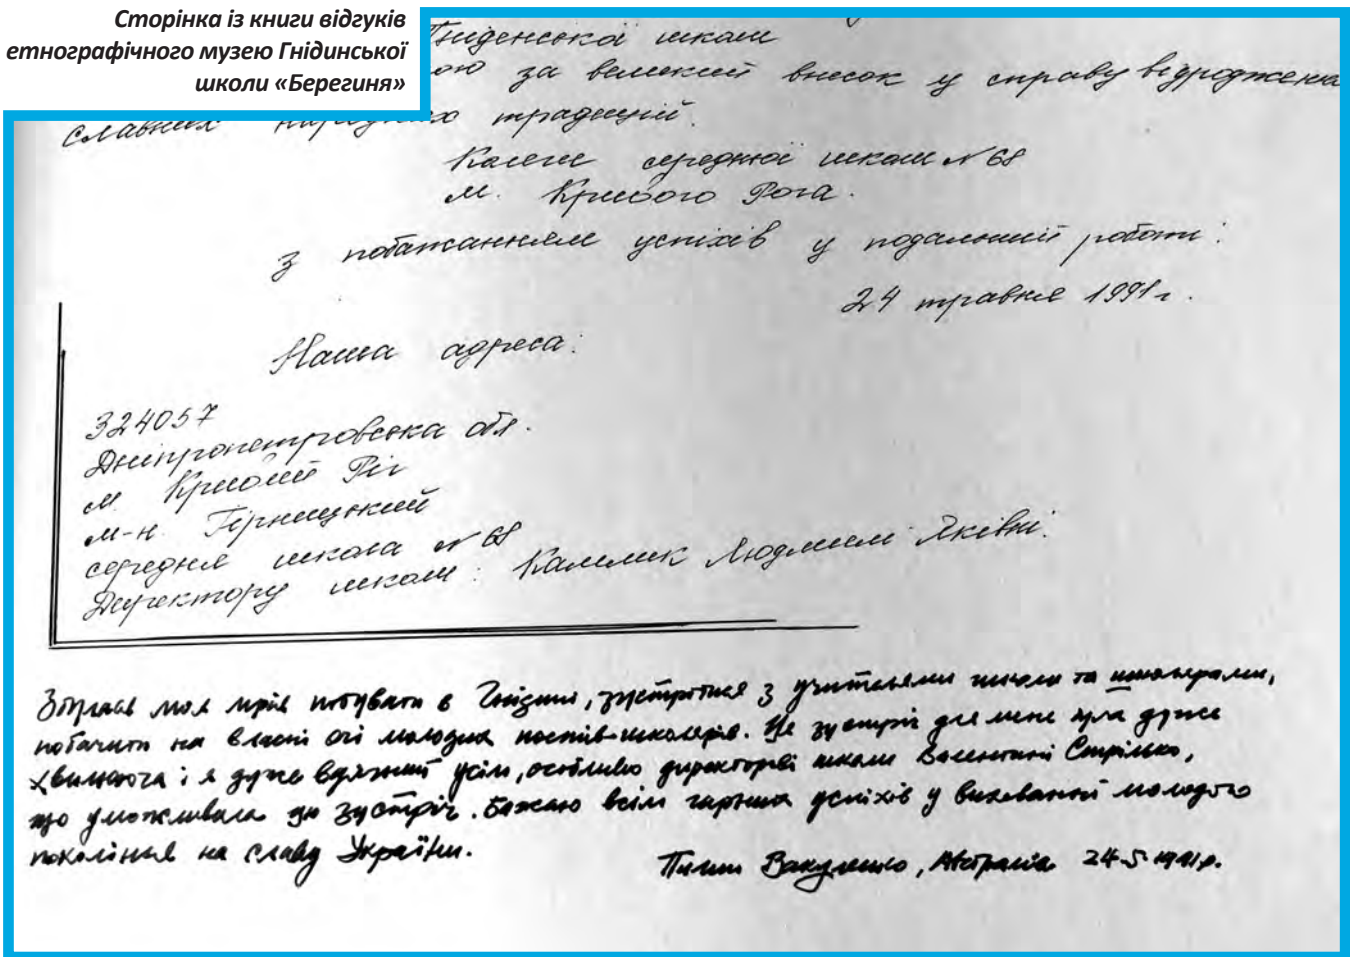 Сторінка із книги відгуків
етнографічного музею Гнідинської
школи «Берегиня»
Гніденської школи
за великий внесок у справу відродження
славних народних традицій.
Колеги середньої школи № 68
м. Кривого Рога.
з побажанням успіхів у подальшій роботі.
24 травня 1991 г.
Наша адреса:
324057
Дніпропетровська обл.
м. Кривий Ріг
м-н. Гірницький
середня школа № 68
Директору школи: Людмилі Яківні.
Збулася моя мрія побувати в Гнідині, зустрітися з учительями школи та школярами,
побачити на власні очі молодих поетів-школярів. Це зустріч для мене була дуже
хвилююча і я дуже вдячний усім, особливо директорові школи Валентині Стрілько,
що уможливила цю зустріч. Бажаю всім гарних успіхів у вихованні молодого
покоління на славу України.
Пилип Вакуленко, Австралія 24-5-1991р.